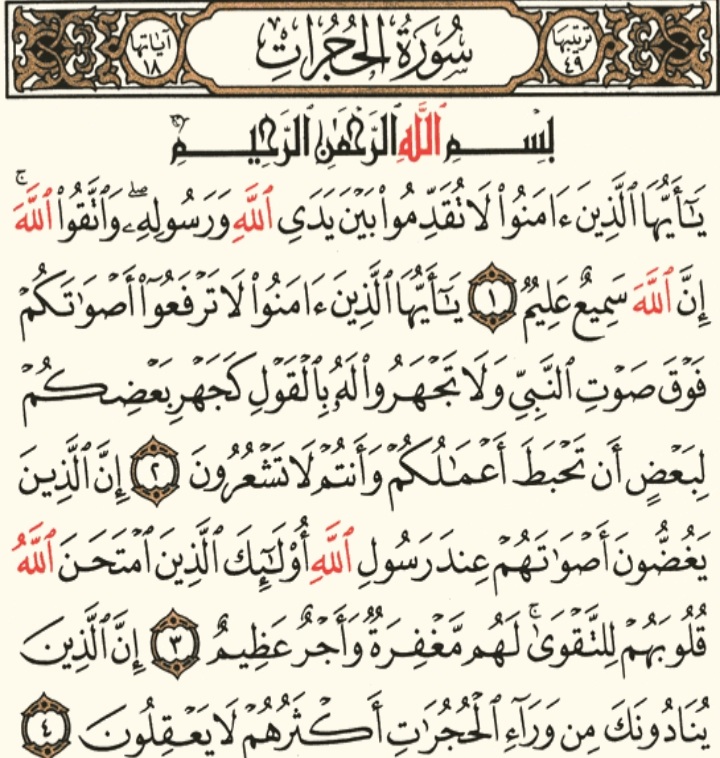 ترتيبها ٤٩ سُورَةُ الحُجُرَاتِ آياتها ١٨
بِسْمِ ٱللَّهِ ٱلرَّحْمَٰنِ ٱلرَّحِيمِ
يَـٰٓأَيُّهَا ٱلَّذِينَ ءَامَنُوا۟ لَا تُقَدِّمُوا۟ بَيْنَ يَدَىِ ٱللَّهِ وَرَسُولِهِۦ ۖ وَٱتَّقُوا۟ ٱللَّهَ ۚ
إِنَّ ٱللَّهَ سَمِيعٌ عَلِيمٌ ١ يَـٰٓأَيُّهَا ٱلَّذِينَ ءَامَنُوا۟ لَا تَرْفَعُوٓا۟ أَصْوَٰتَكُمْ
فَوْقَ صَوْتِ ٱلنَّبِىِّ وَلَا تَجْهَرُوا۟ لَهُۥ بِٱلْقَوْلِ كَجَهْرِ بَعْضِكُمْ
لِبَعْضٍ أَن تَحْبَطَ أَعْمَـٰلُكُمْ وَأَنتُمْ لَا تَشْعُرُونَ ٢ إِنَّ ٱلَّذِينَ
يَغُضُّونَ أَصْوَٰتَهُمْ عِندَ رَسُولِ ٱللَّهِ أُو۟لَـٰٓئِكَ ٱلَّذِينَ ٱمْتَحَنَ ٱللَّهُ
قُلُوبَهُمْ لِلتَّقْوَىٰ ۚ لَهُم مَّغْفِرَةٌ وَأَجْرٌ عَظِيمٌ ٣ إِنَّ ٱلَّذِينَ
يُنَادُونَكَ مِن وَرَآءِ ٱلْحُجُرَٰتِ أَكْثَرُهُمْ لَا يَعْقِلُونَ ٤